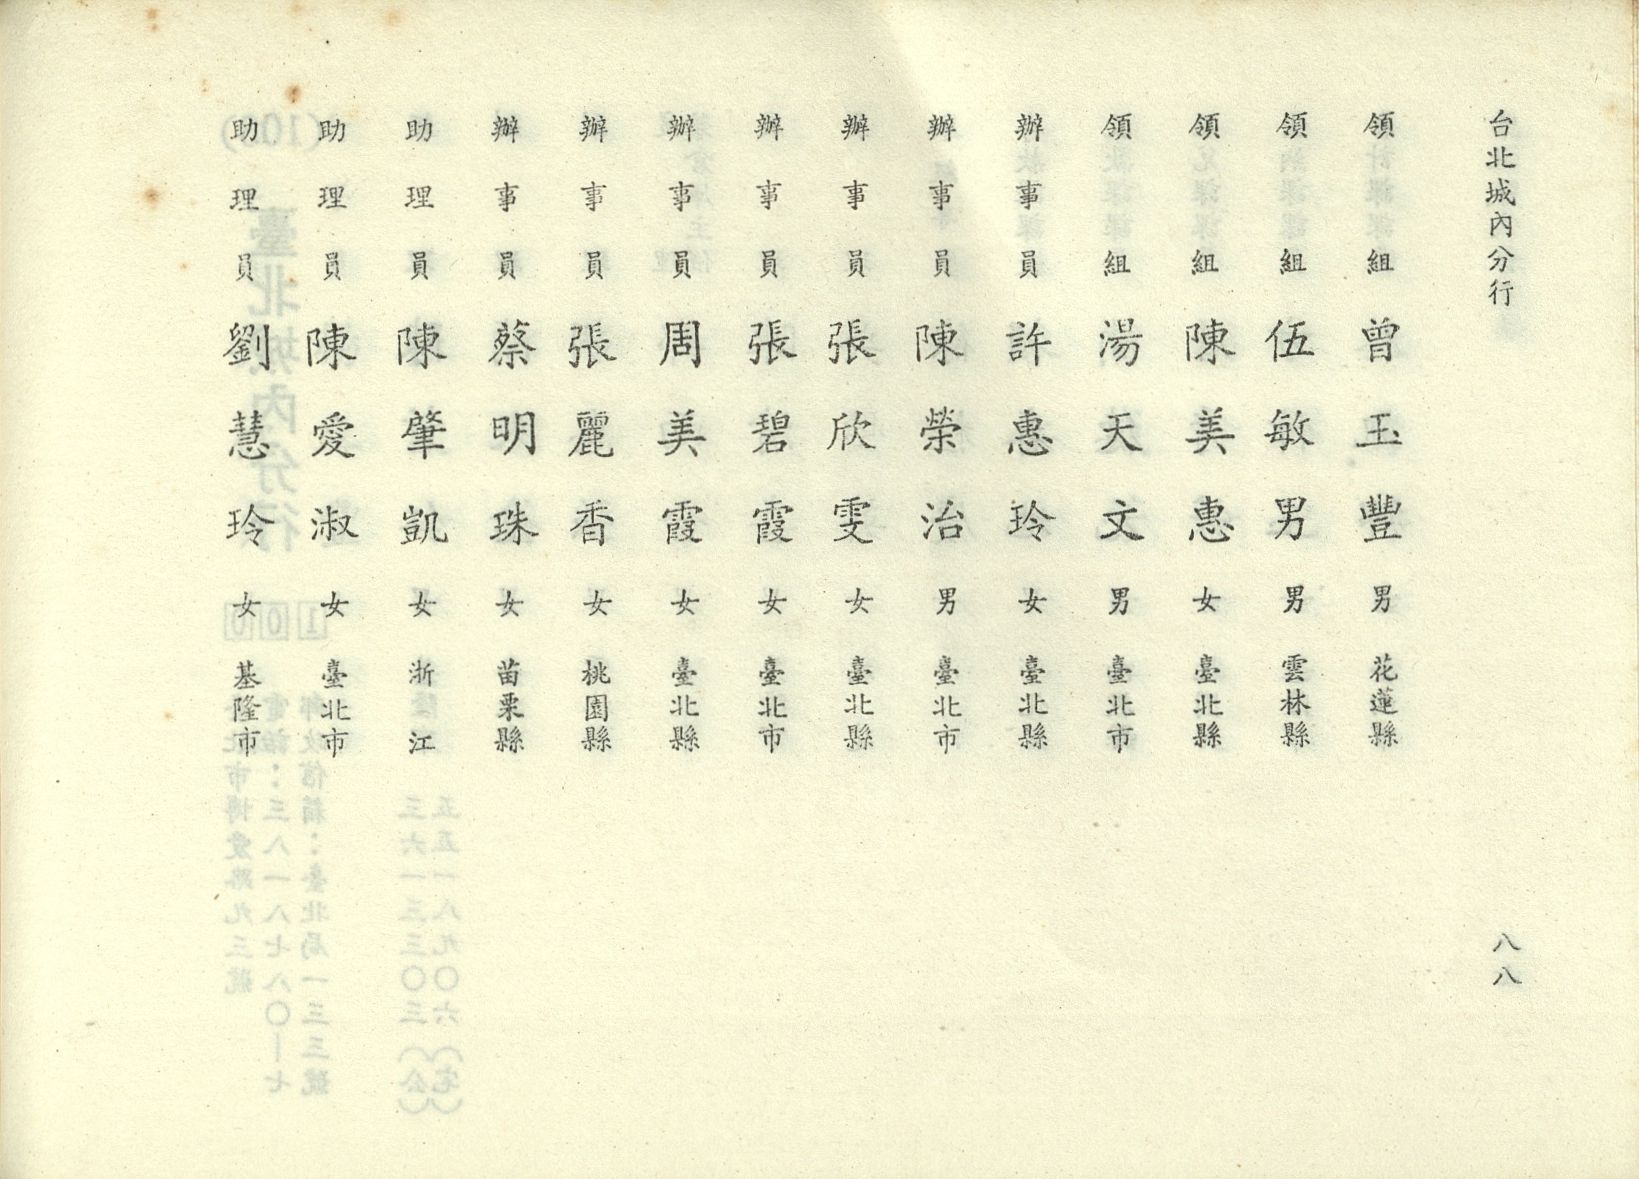 台北城內分行
八八
領組 曾玉豐 男 花蓮縣
領組 伍敏男 男 雲林縣
領組 陳美惠 女 臺北縣
領組 湯天文 男 臺北市
辦事員 許惠玲 女 臺北縣
辦事員 陳榮治 男 臺北市
辦事員 張欣雯 女 臺北縣
辦事員 張碧霞 女 臺北市
辦事員 周美霞 女 臺北縣
辦事員 張麗香 女 桃園縣
辦事員 蔡明珠 女 苗栗縣
助理員 陳肇凱 女 浙江
助理員 陳愛淑 女 臺北市
助理員 劉慧玲 女 基隆市